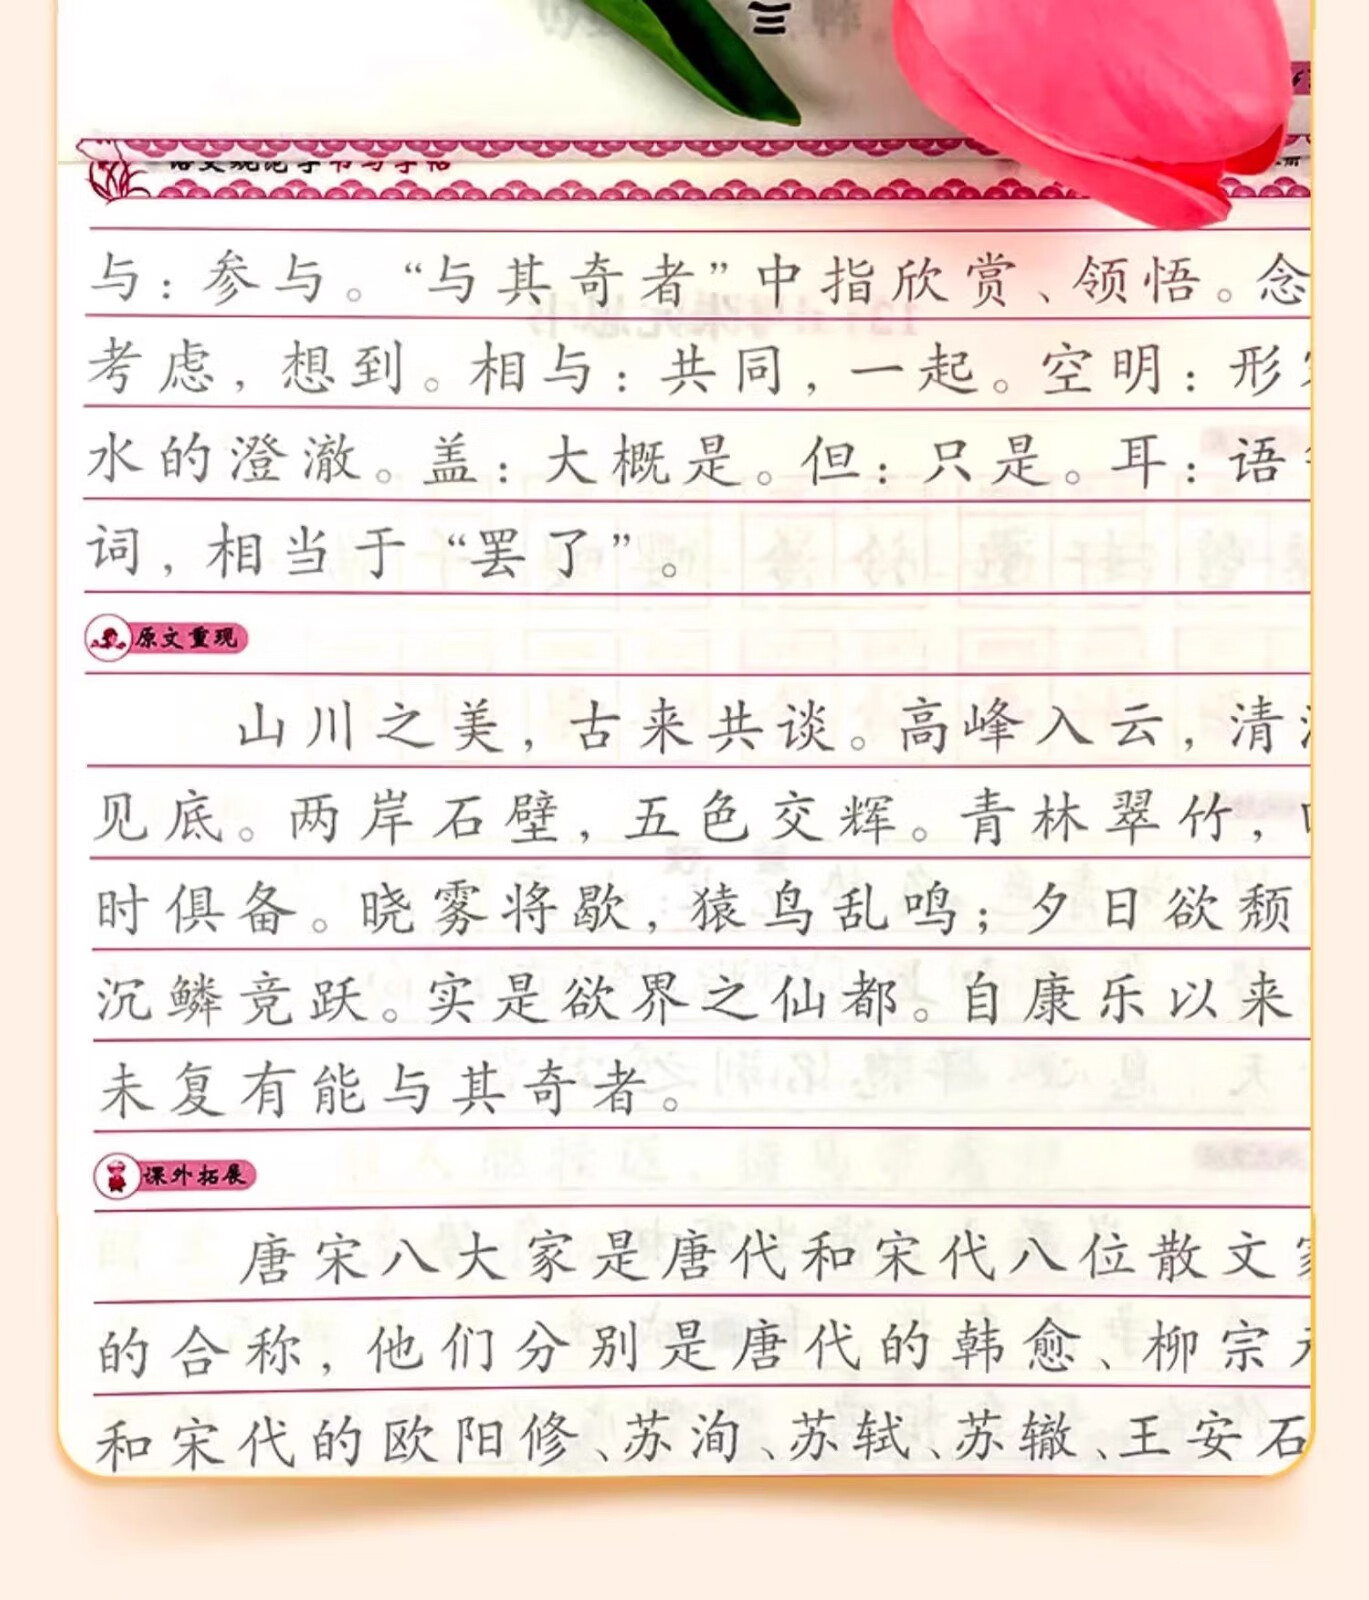 三
语文规范字书写字帖
与：参与。“与其奇者”中指欣赏、领悟。念
考虑，想到。相与：共同，一起。空明：形
水的澄澈。盖：大概是。但：只是。耳：语
词，相当于“罢了”。
原文重现
山川之美，古来共谈。高峰入云，清
见底。两岸石壁，五色交辉。青林翠竹，
时俱备。晓雾将歇，猿鸟乱鸣；夕日欲颓
沉鳞竞跃。实是欲界之仙都。自康乐以来
未复有能与其奇者。
课外拓展
唐宋八大家是唐代和宋代八位散文
的合称，他们分别是唐代的韩愈、柳宗
和宋代的欧阳修、苏洵、苏轼、苏辙、王安石